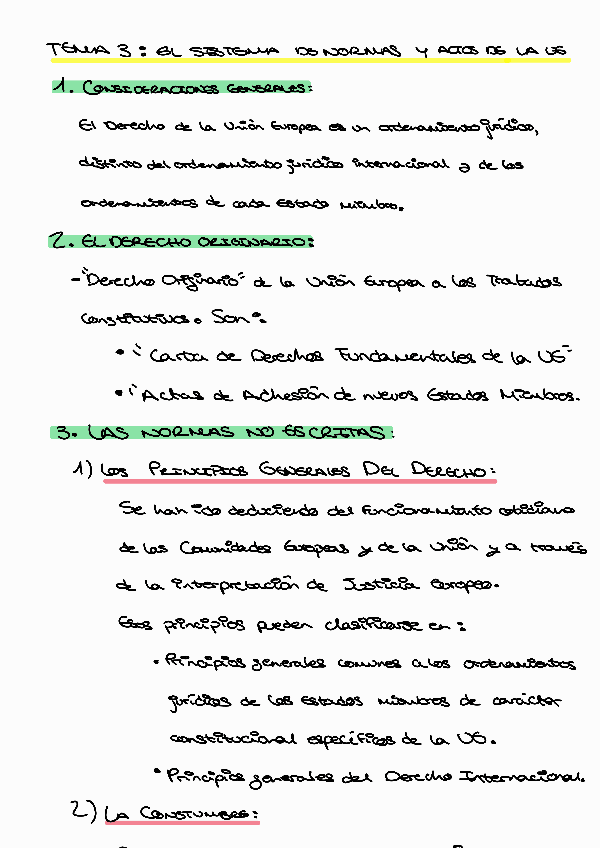 TEMA 3: EL SISTEMA DE NORMAS Y ACTOS DE LA UE
1. CONSIDERACIONES GENERALES:
El Derecho de la Unión Europea es un ordenamiento jurídico,
distinto del ordenamiento jurídico internacional y de los
ordenamientos de cada Estado miembro.
2. EL DERECHO ORIGINARIO:
- "Derecho Originario" de la Unión Europea a los Tratados
Constitutivos. Son:
• "Carta de Derechos Fundamentales de la UE"
• "Actas de Adhesión de nuevos Estados Miembros.
3. LAS NORMAS NO ESCRITAS:
1) LOS PRINCIPIOS GENERALES DEL DERECHO:
Se han ido deduciendo del funcionamiento cotidiano
de las Comunidades Europeas y de la Unión y a través
de la interpretación de Justicia europea.
Esos principios pueden clasificarse en:
• Principios generales comunes a los ordenamientos
jurídicos de los Estados miembros de carácter
constitucional específicos de la UE.
• Principios generales del Derecho Internacional.
2) LA CONSTUMBRE: